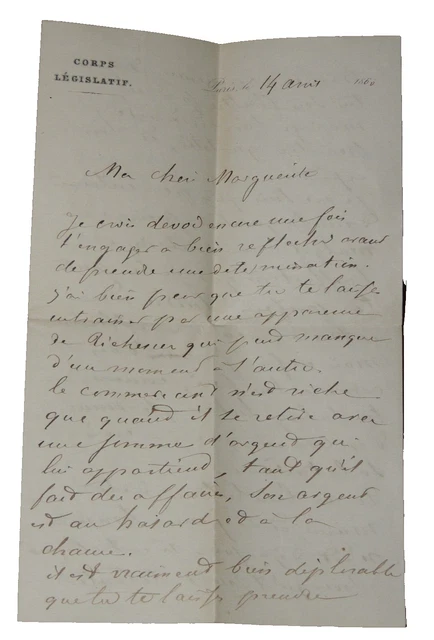 CORPS
LÉGISLATIF.
Paris, le 14 avril 186
Ma chère Marguerite
Je crois devoir encore une fois
t'engager à bien réfléchir avant
de prendre une determination.
j'ai bien peur que tu te laisse
entrainer par une apparence
de Richesse qui peut manquer
d'un moment à l'autre.
le commerçant n'est riche
que quand il se retire avec
une somme d'argent qui
lui appartient, tant qu'il
fait des affaires, son argent
est au hasard et à la
chance.
il est vraiment bien déplorable
que tu te laisse prendre